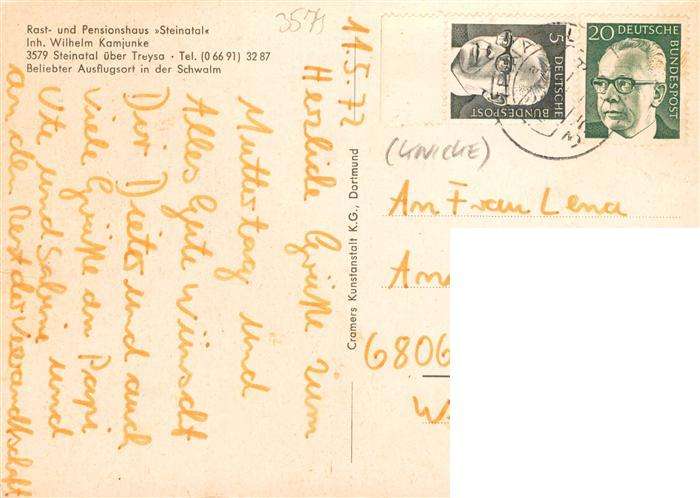 Rast- und Pensionshaus »Steinatal«
Inh. Wilhelm Kamjunke
3579 Steinatal über Treysa • Tel. (0 66 91) 32 87
Beliebter Ausflugsort in der Schwalm
3571
11.5.72
Herzliche Grüße zum
Muttertag und
Alles Gute wünscht
Dir Dieter und auch
viele Grüße den Papi
Ute und Sabine und
an den Rest der Verwandtschaft
Cramers Kunstanstalt K.G., Dortmund
5
DEUTSCHE
BUNDESPOST
20 DEUTSCHE
BUNDESPOST
(KNICKE)
An Frau Lena
6806